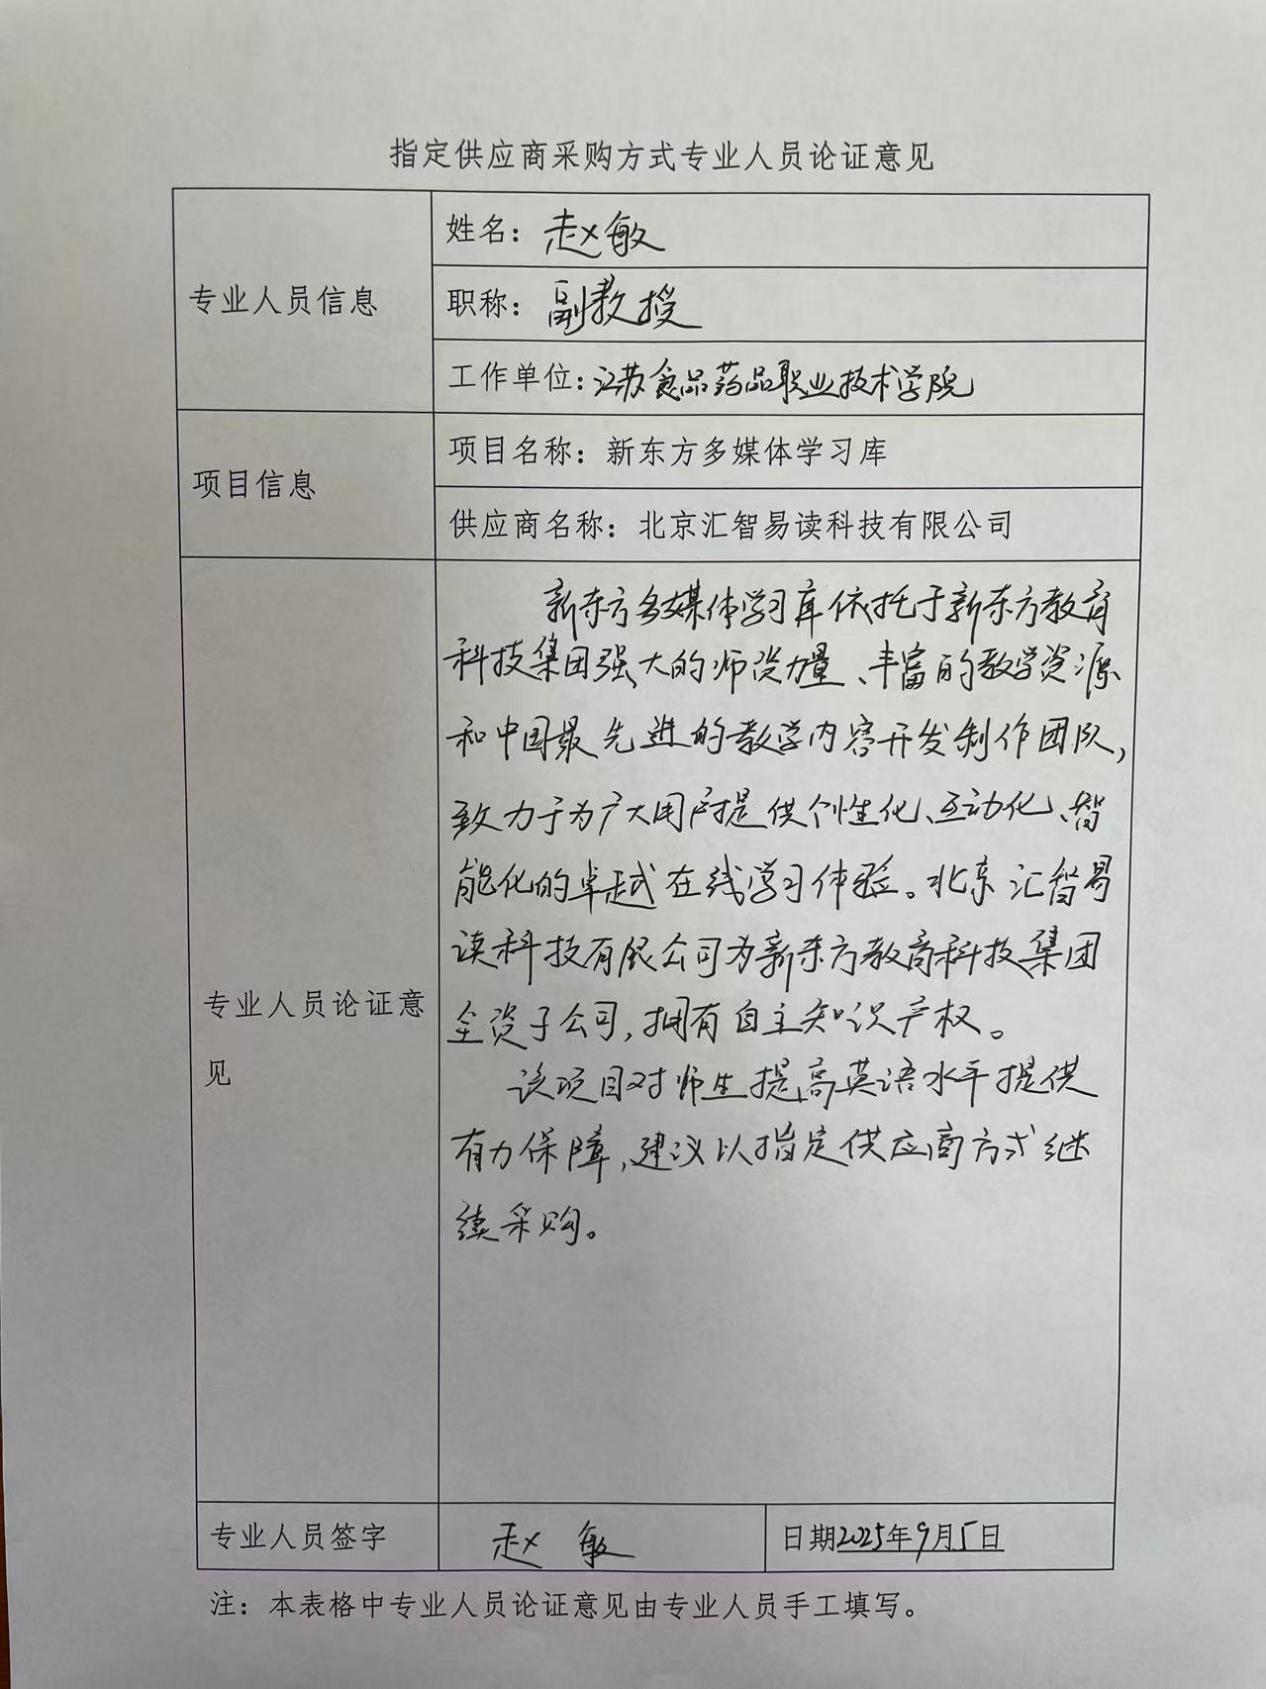 指定供应商采购方式专业人员论证意见
专业人员信息
姓名：赵敏
职称：副教授
工作单位：江苏食品药品职业技术学院
项目信息
项目名称：新东方多媒体学习库
供应商名称：北京汇智易读科技有限公司
专业人员论证意
见
新东方多媒体学习库依托于新东方教育
科技集团强大的师资力量、丰富的教学资源
和中国最先进的教学内容开发制作团队，
致力于为广大用户提供个性化、互动化、智
能化的卓越在线学习体验。北京汇智易
读科技有限公司为新东方教育科技集团
全资子公司，拥有自主知识产权。
该项目对师生提高英语水平提供
有力保障，建议以指定供应商方式继
续采购。
专业人员签字
赵敏
日期2025年9月5日
注：本表格中专业人员论证意见由专业人员手工填写。